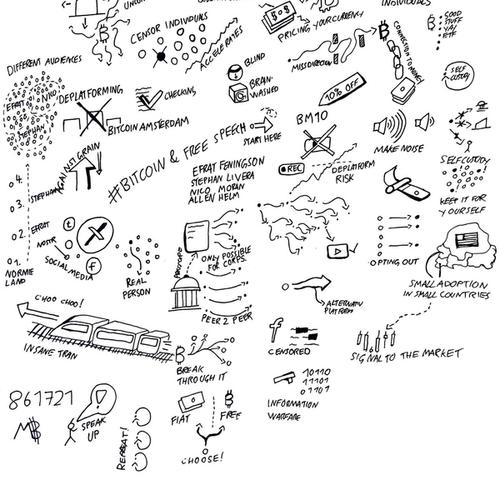 CENSOR INDIVIDUALS
ACCELERATES
PRICING YOUR CURRENCY
INDIVIDUALS
: GOOD
STUFF
CONNECTION TO MONEY
DIFFERENT AUDIENCES
EFRAT
NICO
STEPHAN
DEPLATFORMING
CHECKING
BLIND
BRAIN-
WASHED
MISDIRECTION
10% OFF
SELF
CUSTODY
BITCOIN AMSTERDAM
#BITCOIN & FREE SPEECH
START HERE
BM10
MAKE NOISE
AGAINST GRAIN
EFRAT FENIGSON
STEPHAN LIVERA
NICO MORAN
ALLEN HELM
REC
DEPLATFORM
RISK
SELFCUSTODY
KEEP IT FOR
YOURSELF
4.
3. STEPHAN
2. EFRAT
NOSTR
t
X
f
SOCIAL MEDIA
1.
NORMIE
LAND
REAL
PERSON
ONLY POSSIBLE
FOR CORPS.
PEER 2 PEER
OPTING OUT
ALTERNATIV
PLATFORM
SMALL ADOPTION
IN SMALL COUNTRIES
CHOO CHOO!
INSANE TRAN
BREAK
THROUGH IT
f
CENSORED
SIGNAL TO THE MARKET
10110
11101
01101
INFORMATION
WARFARE
861721
SPEAK
UP
REPEAT!
FIAT
FREE
CHOOSE!